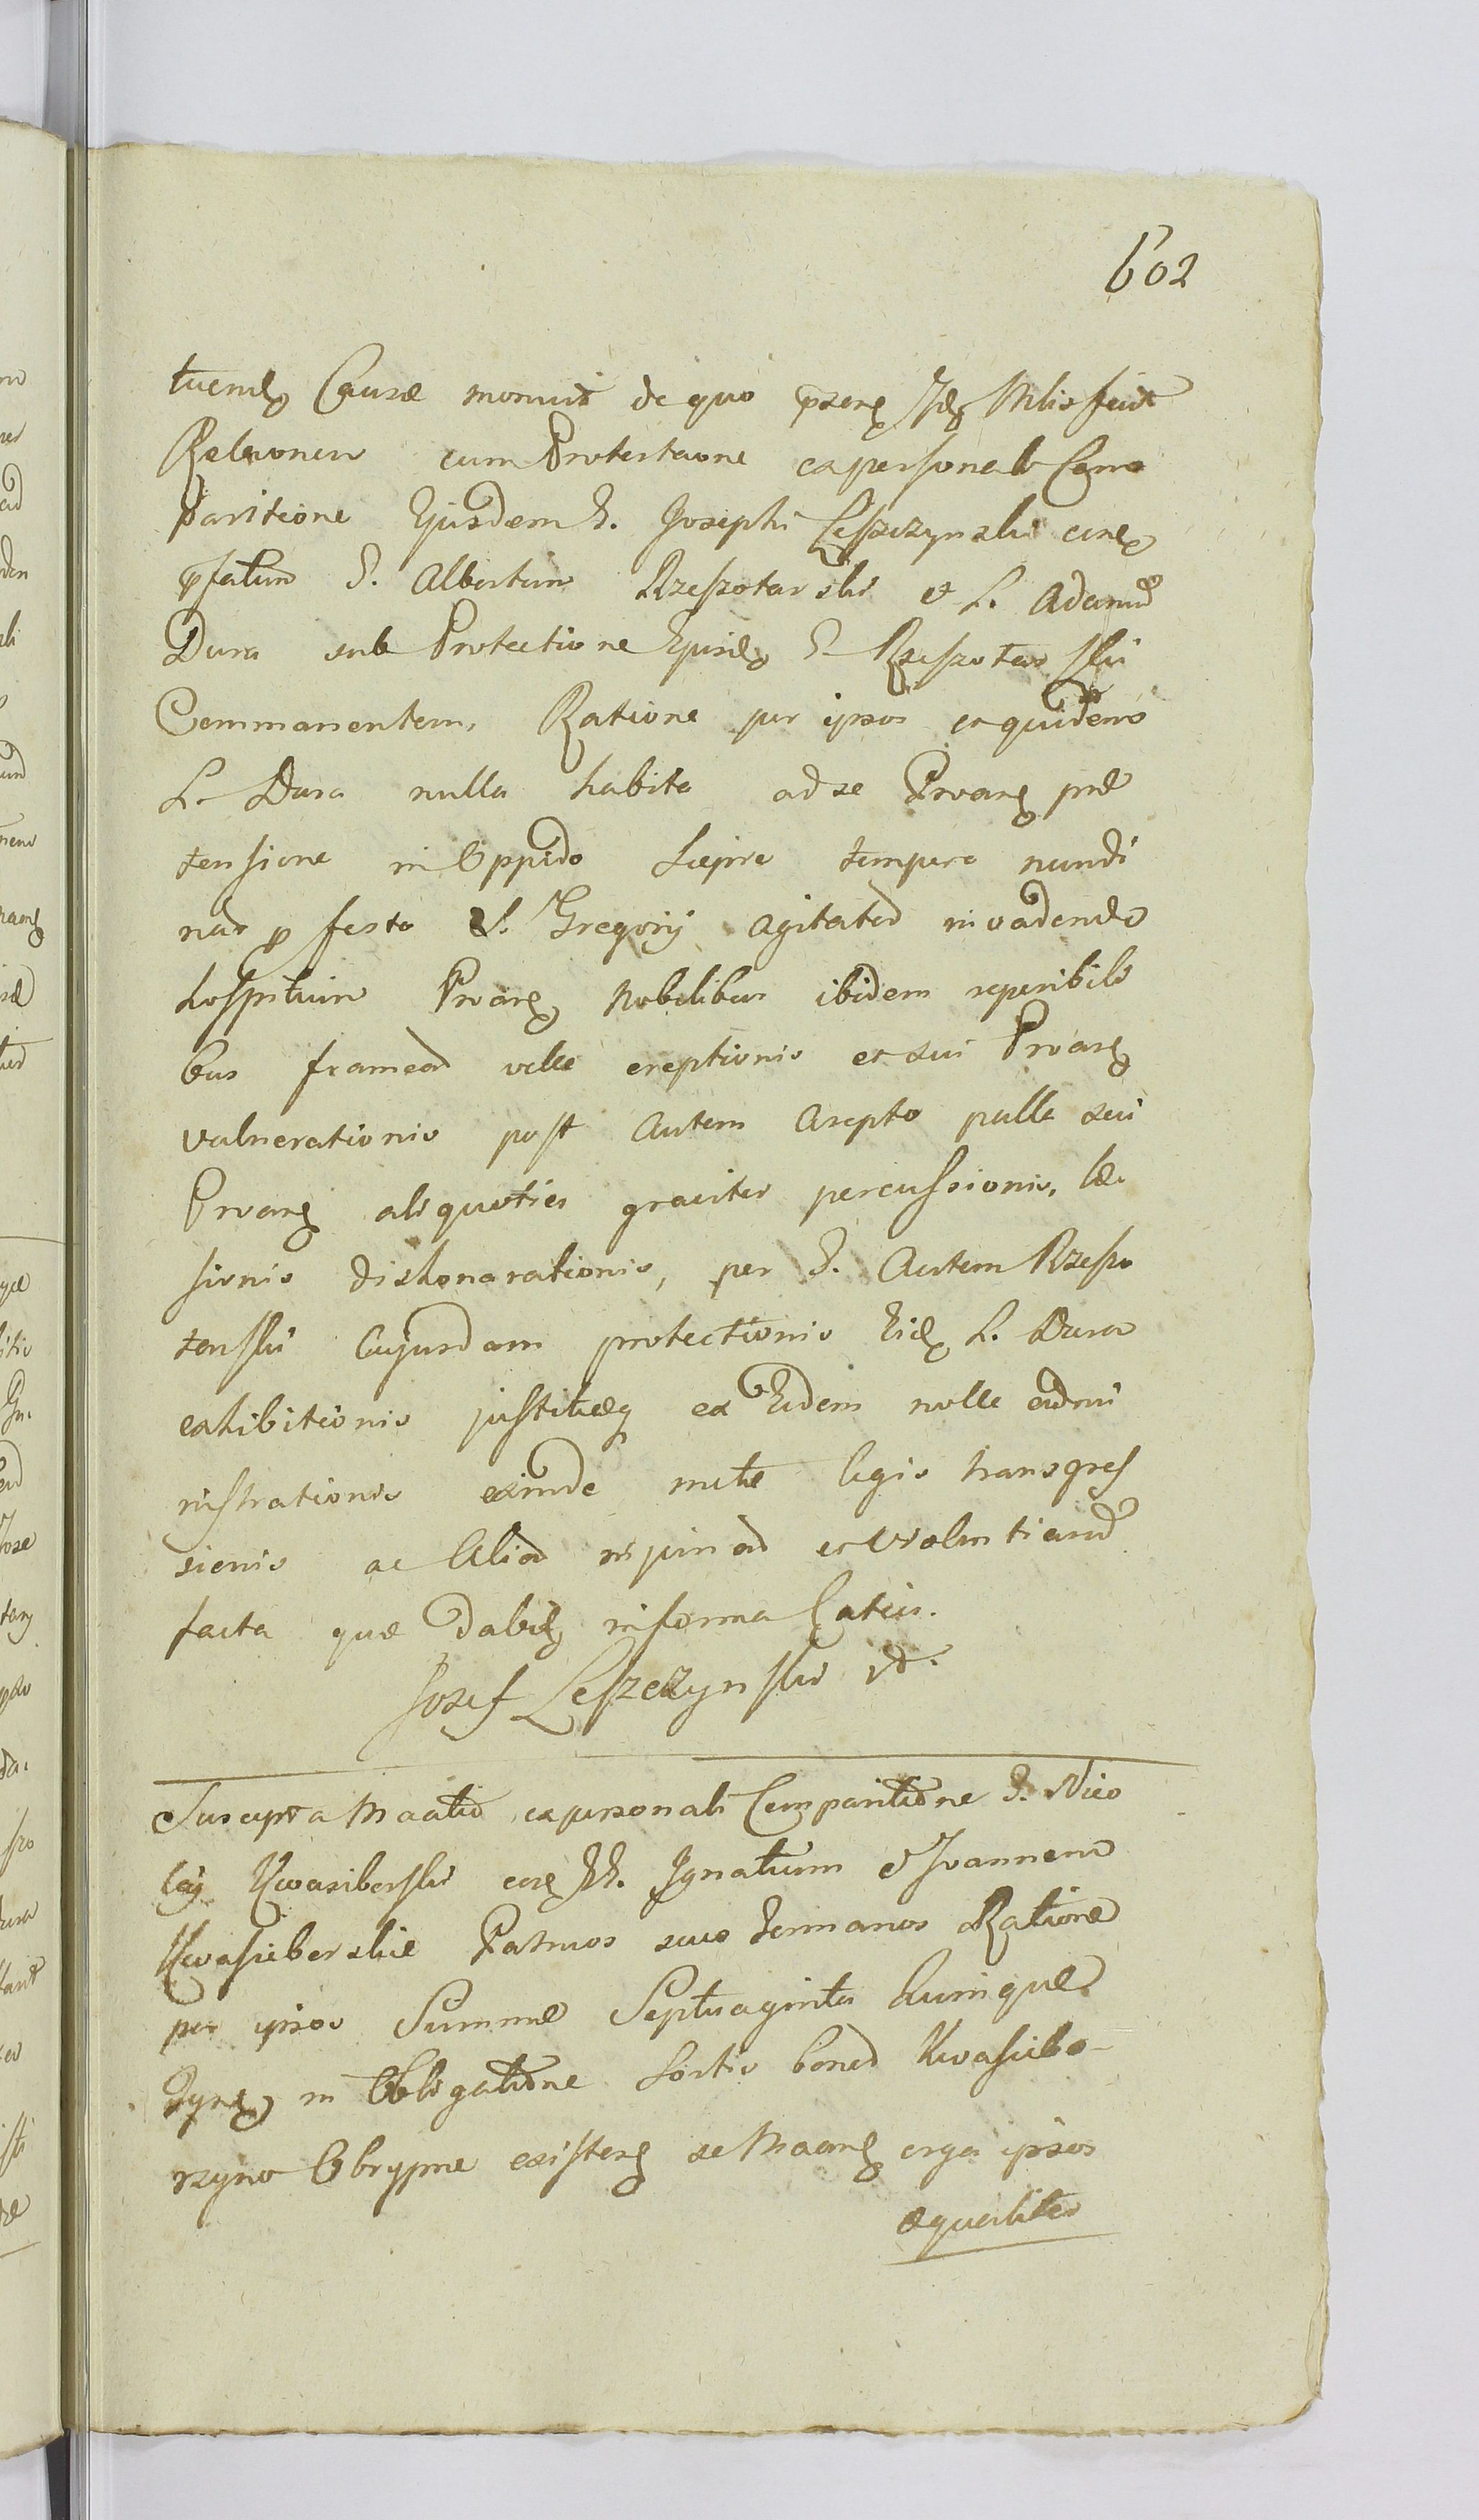 602
tuendς Causæ monuit de quo præsenς Idς Mlis fecit
Relaonem cum Protestaone ex personali Com
paritione Ejusdem G. Josephi Leszczynski conς
pfatum G. Albertum Rzeszotarski et L. Adamũ
Dura sub Protectione Ejusdς G. Rzeszotarskii
Commanentem, Ratione per ipsos et quidem
L. Dura nulla habita ad se Proanς præ
tensione in Oppido Sieprc tempore nundi
nar p festo S. Gregorij agitatar invadendo
hospitium Proanς Nobilibus ibidem reperibili
bus framear velle ereptionis et sui Proanς
vulnerationis post autem arepto palle sui
Proanς aliquoties graviter percussionis, læ
sionis dishonorationis, per G. Autem Rzeszo
tarskii Cujusdam protectionis Eidς L. Dura
exhibitionis justitiæq ex Eodem nolle admi
nistrationis exinde mette legis transgres
sionis ac Aliar injuriar et Violentiarũ
facta quæ dabitς in forma Latius.
Jozef Leszczynski
Suscepta Maatio ex personali Comparitione G. Nico
lai Kwasiborski conς GG. Ignatium et Joannem
Kwasiborskie Patruos suos Germanos Ratione
per ipsos Summæ Septuaginta Quinque
in Obligatione Sortis bonor Kwasibo-
rzyno Obrypne existenς se Maanς erga ipsos
æqualiter